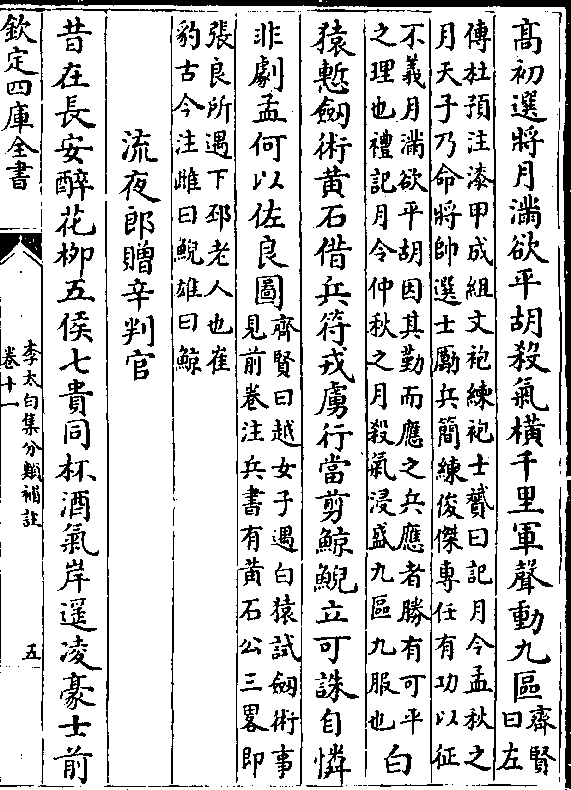 髙初選將月滿欲平胡殺氣橫千里軍聲動九區齊賢曰左
傳杜預注漆甲成組文袍練袍士贇曰記月令孟秋之
月天子乃命將帥選士勵兵簡練俊傑專任有功以征
不義月滿欲平胡因其勤而應之兵應者勝有可平
之理也禮記月令仲秋之月殺氣浸盛九區九服也白
猿慙劔術黄石借兵符戎虜行當剪鯨鯢立可誅自憐
非劇孟何以佐良圖齊賢曰越女子遇白猿試劔術事
見前卷注兵書有黄石公三畧即
張良所遇下邳老人也崔
豹古今注雌曰鯢雄曰鯨
流夜郎贈辛判官
昔在長安醉花栁五侯七貴同杯酒氣岸遥凌豪士前
欽定四庫全書
李太白集分類補註
卷十一
五